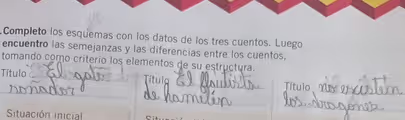 Completo los esquemas con los datos de los tres cuentos. Luego
encuentro las semejanzas y las diferencias entre los cuentos,
tomando como criterio los elementos de su estructura.
Título El gato
soñador
Título El flautista
de hamelin
Título no existen
los dragones
Situación inicial